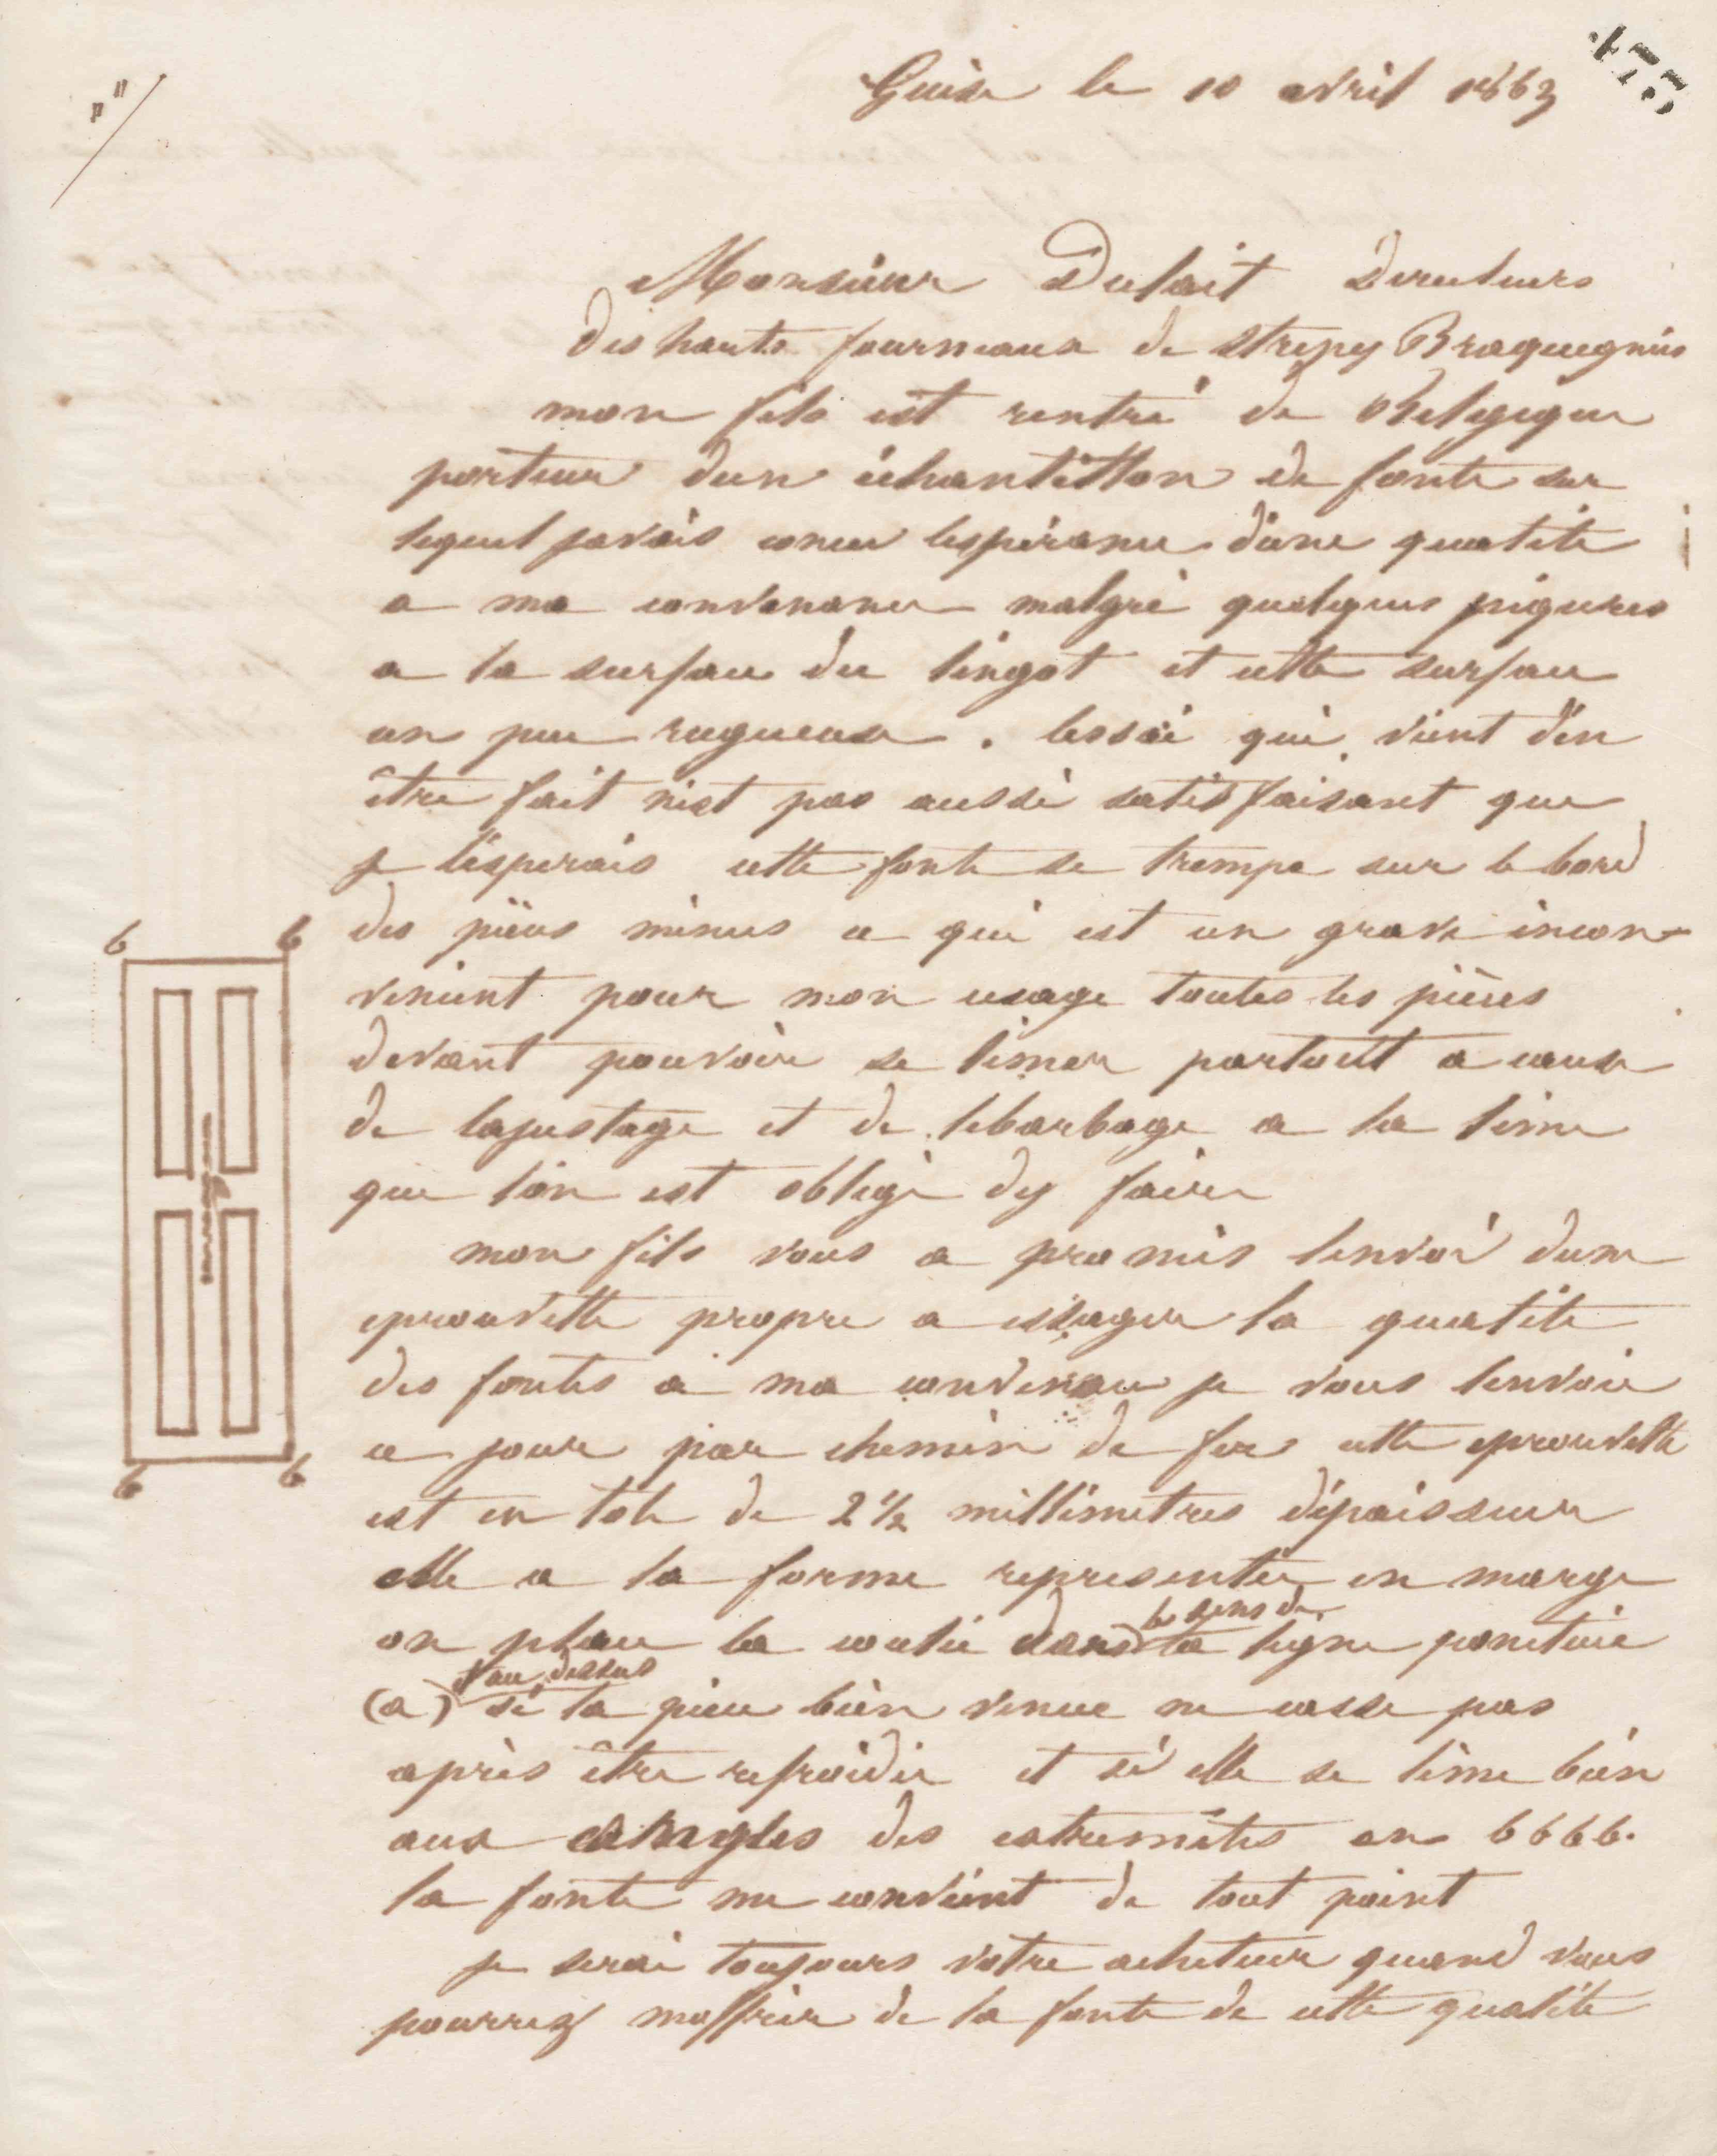 475
Guise le 10 avril 1863
Monsieur Dulait Directeurs
des hauts fourneaux de Strepy Braquegnies
mon fils est rentré de Belgique
porteur dun échantillon de fonte sur
lequel javais concu lespérance d'une qualité
a ma convenance malgré quelques piqures
a la surface du lingot et cette surface
un peu rugueuse. lessai qui vient d'en
être fait n'est pas aussi satisfaisant que
je l'esperais cette fonte se trempe sur le bord
des pièces minces ce qui est un grave incon-
venient pour mon usage toutes les pièces
devant pouvoir se limer partout a cause
de lajustage et de lebarbage a la lime
que l'on est obligé dy faire
mon fils vous a promis lenvoi dune
eprouvette propre a essayer la qualité
des fontes a ma convenance je vous lenvoie
ce jour par chemin de fer cette eprouvette
est en tole de 2 1/2 millimetres d'épaisseur
elle a la forme representée en marge
on place la coulée dans le sens de la ligne ponctuée
(a) et au dessus si la pièce bien venue ne casse pas
après être refroidie et si elle se lime bien
aux angles des extremités en b b b b.
la fonte me convient de tout point
je serai toujours votre acheteur quand vous
pourrez moffrir de la fonte de cette qualité
b b
b b